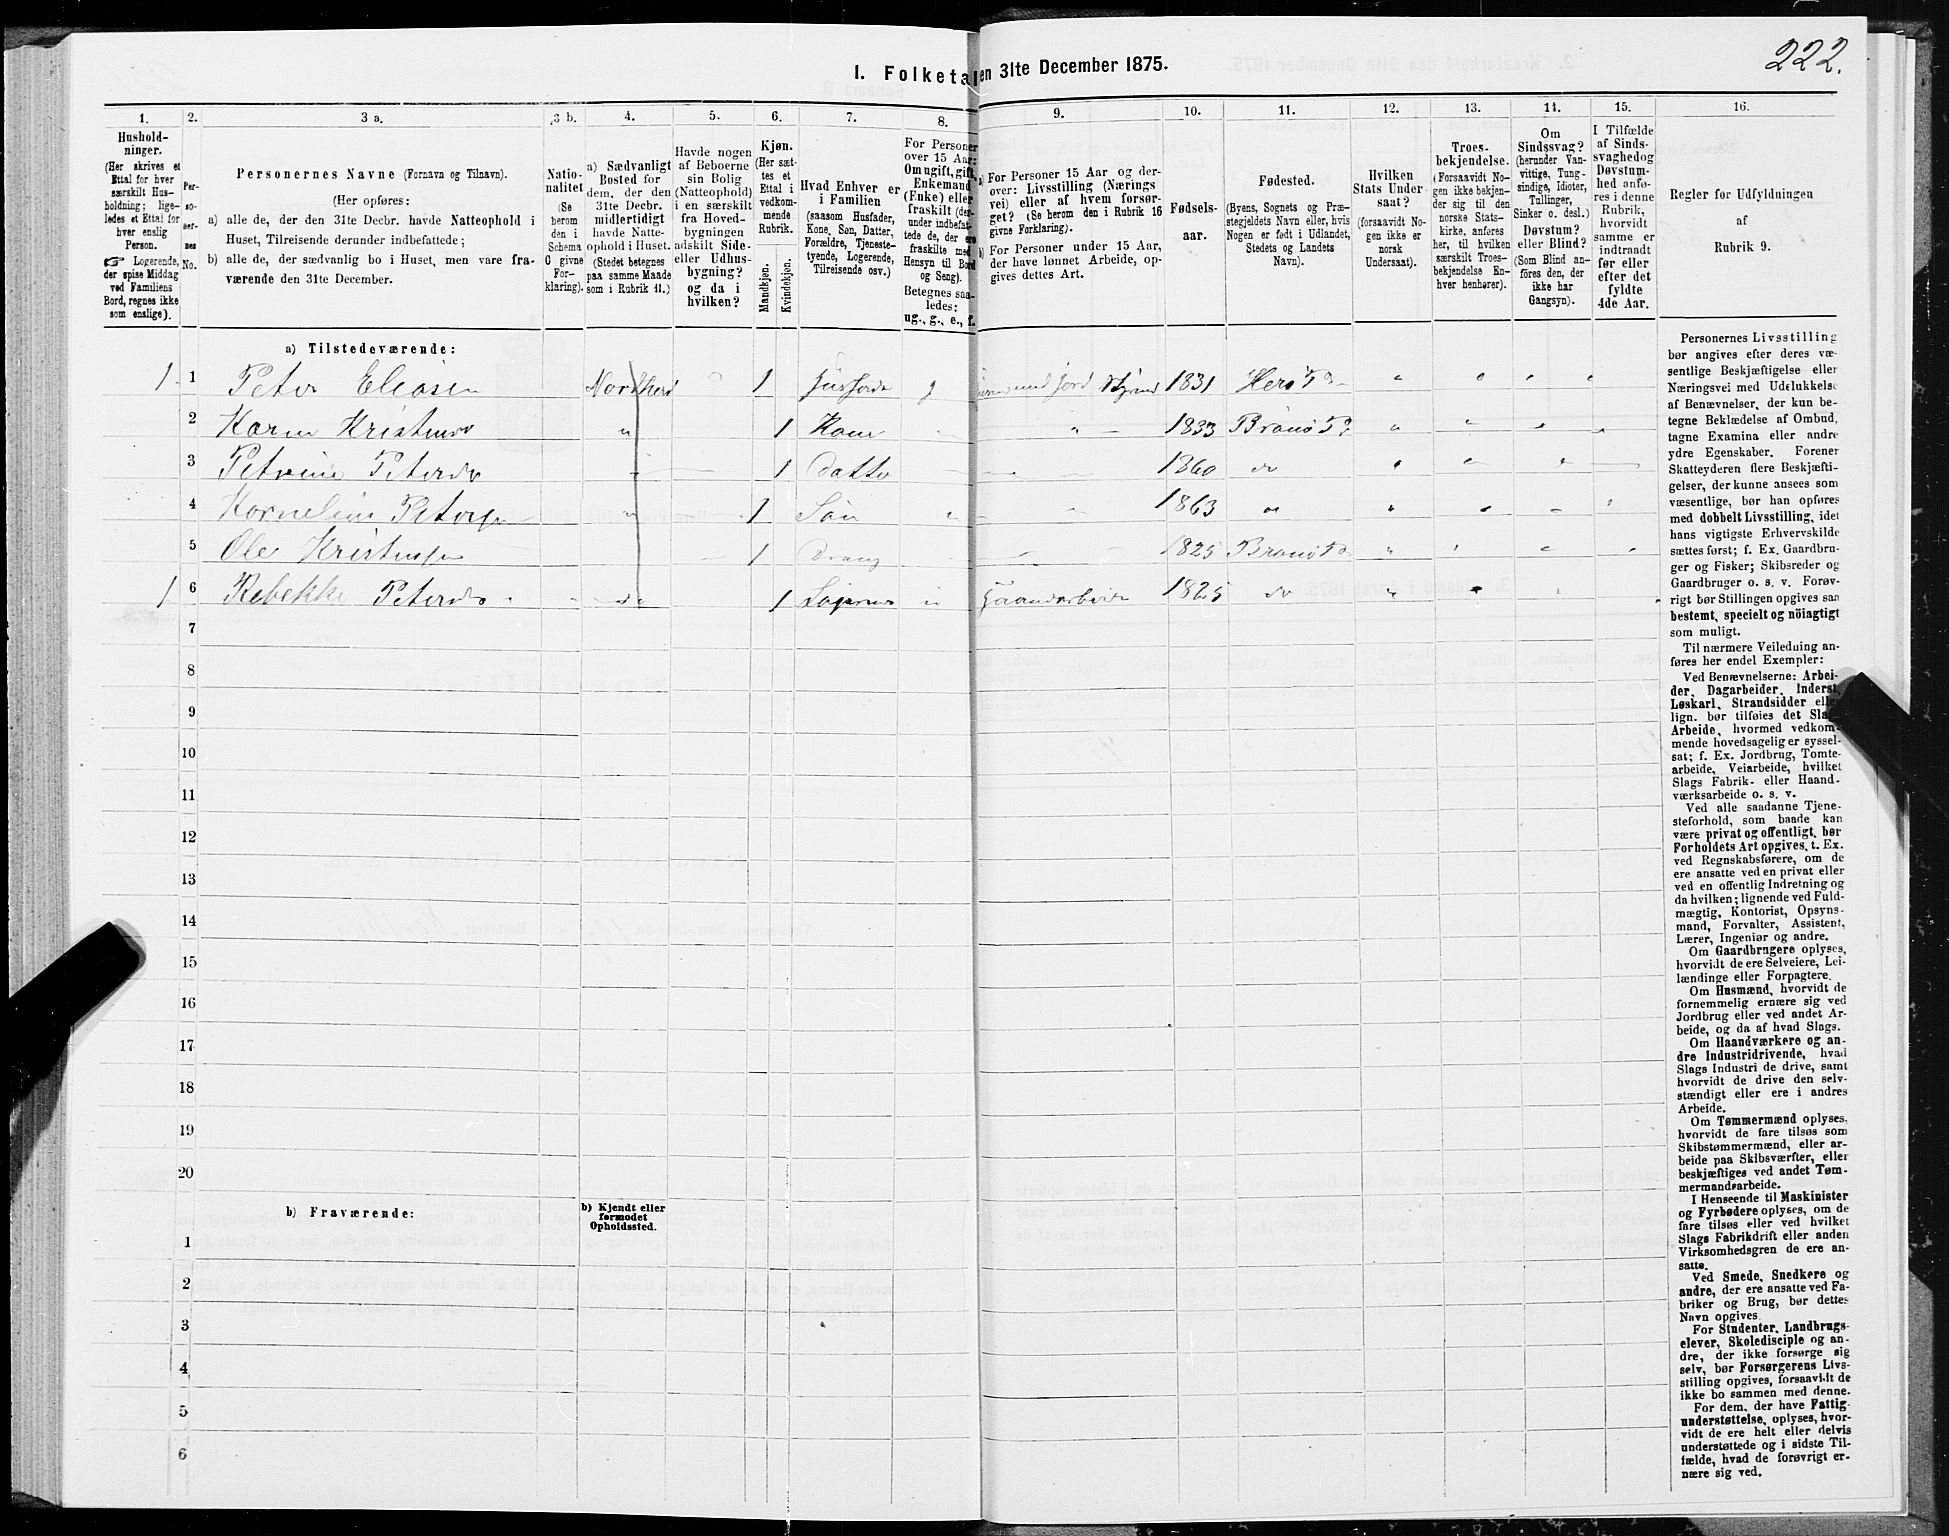 222.
1. Folketallen 31te December 1875.
1. 2. 3 a. 3 b. 4. 5. 6. 7. 8. 9. 10. 11. 12. 13. 14. 15. 16.
Hushold-
ninger.
(Her skrives et
Ettal for hver
særskilt Hus-
holdning; lige-
ledes et Ettal for
hver enslig
Person.
☞ Logerende,
der spise Middag
ved Familiens
Bord, regnes ikke
som enslige).
Per-
so-
ner-
nes
No.
Personernes Navne (Fornavn og Tilnavn).
(Her opføres:
a) alle de, der den 31te Decbr. havde Natteophold i
Huset, Tilreisende derunder indbefattede;
b) alle de, der sædvanlig bo i Huset, men vare fra-
værende den 31te December.
Natio-
nalitet
(Se
herom
den i
Schema
C givne
For-
klaring).
a) Sædvanligt
Bosted for
dem, der den
31te Decbr.
midlertidigt
havde Natte-
ophold i Huset.
(Stedet betegnes
paa samme Maade
som i Rubrik 11.)
Havde nogen
af Beboerne
sin Bolig
(Natteophold)
i en særskilt
fra Hoved-
bygningen
adskilt Side-
eller Udhus-
bygning?
og da i
hvilken?
Kjøn.
(Her sæt-
tes et
Ettal i
vedkom-
mende
Rubrik.
Mandkjøn.
Kvindekjøn.
Hvad Enhver er
i Familien
(saasom Husfader,
Kone, Søn, Datter,
Forældre, Tjeneste-
tyende, Logerende,
Tilreisende osv.)
For Personer
over 15 Aar:
Om ugift, gift,
Enkemand
(Enke) eller
fraskilt (der-
under indbefat-
tede de, der ere
fraskilte med
Hensyn til Bord
og Seng).
Betegnes saa-
ledes:
ug., g., e., f.
a) For Personer 15 Aar og der-
over: Livsstilling (Nærings
vei) eller af hvem forsør-
get? (Se herom den i Rubrik 16
givne Forklaring).
b) For Personer under 15 Aar,
der have lønnet Arbeide, op-
gives dettes Art.
Fødsels-
aar.
Fødested.
(Byens, Sognets og Præ-
stegjeldets Navn eller, hvis
Nogen er født i Udlandet,
Stedets og Landets
Navn).
Hvilken
Stats Under-
saat?
(forsaavidt No-
gen ikke er
norsk
Undersaat).
Troes-
bekjendelse.
(Forsaavidt No-
gen ikke bekjen-
der sig til den
norske Stats-
kirke, anføres
her, til hvilken
særskilt Troes-
bekjendelse En-
hver henhører).
Om
Sindssvag?
(herunder Van-
vittige, Tung-
sindige, Idioter,
Tullinger,
Sinker o. desl.)
Døvstum?
eller Blind?
(Som Blind an-
føres den, der
ikke har
Gangsyn).
I Tilfælde
af Sinds-
svaghed og
Døvstum-
hed anfø-
res i denne
Rubrik,
hvorvidt
samme er
indtraadt
før eller
efter det
fyldte
4de Aar.
Regler for Udfyldningen
af
Rubrik 9.
a) Tilstedeværende:
1 1 Peter Eliasen 1 g med jord 1831 Herø
2 Karen 1 Kone 1833 Brønø
3 Petrine 1 Datter 1860 do
4 Kornelius 1 Søn 1863
5 Ole 1 Dreng 1825 Brønø
1 6 Rebekke do 1 1825 do
7
8
9
10
11
12
13
14
15
16
17
18
19
20
b) Fraværende:
b) Kjendt eller
formodet
Opholdssted.
1
2
3
4
5
6
Personernes Livsstilling
bør angives efter deres væ-
sentlige Beskjæftigelse eller
Næringsvei med Udelukkelse
af Benævnelser, der kun be-
tegne Beklædelse af Ombud,
tagne Examina eller andre
ydre Egenskaber. Forener
Skatteyderen flere Beskjæfti-
gelser, der kunne ansees som
væsentlige, bør han opføres
med dobbelt Livsstilling, idet
hans vigtigste Erhvervskilde
sættes først; f. Ex. Gaardbru-
ger og Fisker; Skibsreder og
Gaardbruger o. s. v. Forøv-
rigt bør Stillingen opgives saa
bestemt, specielt og nöiagtigt
som muligt.
Til nærmere Veiledning an-
føres her endel Exempler:
Ved Benævnelserne: Arbei-
der, Dagarbeider, Inderst,
Løskarl, Strandsidder eller
lign. bør tilføies det Slags
Arbeide, hvormed vedkom-
mende hovedsagelig er syssel-
sat; f. Ex. Jordbrug, Tomte-
arbeide, Veiarbeide, hvilket
Slags Fabrik- eller Haand-
værksarbeide o. s. v.
Ved alle saadanne Tjene-
steforhold, som baade kan
være privat og offentligt, bør
Forholdets Art opgives, t. Ex.
ved Regnskabsførere, om de
ere ansatte ved en privat eller
ved en offentlig Indretning og
da hvilken; lignende ved Fuld-
mægtig, Kontorist, Opsyns-
mand, Forvalter, Assistent,
Lærer, Ingeniør og andre.
Om Gaardbrugere oplyses,
hvorvidt de ere Selveiere, Lei-
lændinge eller Forpagtere.
Om Husmænd, hvorvidt de
fornemmelig ernære sig ved
Jordbrug eller ved andet Ar-
beide, og da af hvad Slags.
Om Haandværkere og an-
dre Industridrivende, hvad
Slags Industri de drive, samt
hvorvidt de drive den selv-
stændigt eller ere i andres
Arbeide.
Om Tømmermænd oplyses,
hvorvidt de fare tilsøs som
Skibstømmermænd, eller ar-
beide paa Skibsværfter, eller
beskjæftiges ved andet Tøm-
mermandsarbeide.
I Henseende til Maskinister
og Fyrbødere oplyses, om de
fare tilsøs eller ved hvilket
Slags Fabrikdrift eller anden
Virksomhedsgren de ere an-
satte.
Ved Smede, Snedkere og
andre, der ere ansatte ved Fa-
briker og Brug, bør dettes
Navn opgives.
For Studenter, Landbrugs-
elever, Skoledisciple og an-
dre, der ikke forsørge sig
selv, bør Forsørgerens Livs-
stilling opgives, forsaavidt de
ikke bo sammen med denne.
For dem, der have Fattig-
understøttelse, oplyses, hvor-
vidt de ere helt eller delvis
understøttede og i sidste Til-
fælde, hvad de forøvrigt er-
nære sig ved.